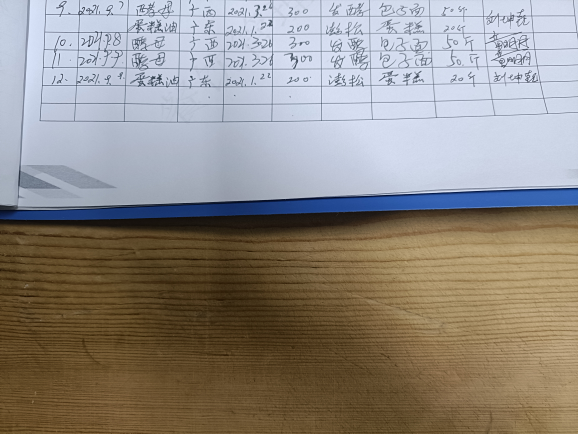 9. 2021.9.7 酵母 广西 2021.3.26 300 发酵 包点面 50斤
蛋糕油 广东 2021.1.22 200 澎松 蛋糕 20斤
10. 2021.9.8 酵母 广西 2021.3.26 300 发酵 包子面 50斤
11. 2021.9.9 酵母 广西 2021.3.26 300 发酵 包子面 50斤
12. 2021.9.9. 蛋糕油 广东 2021.1.22 200 澎松 蛋糕 20斤